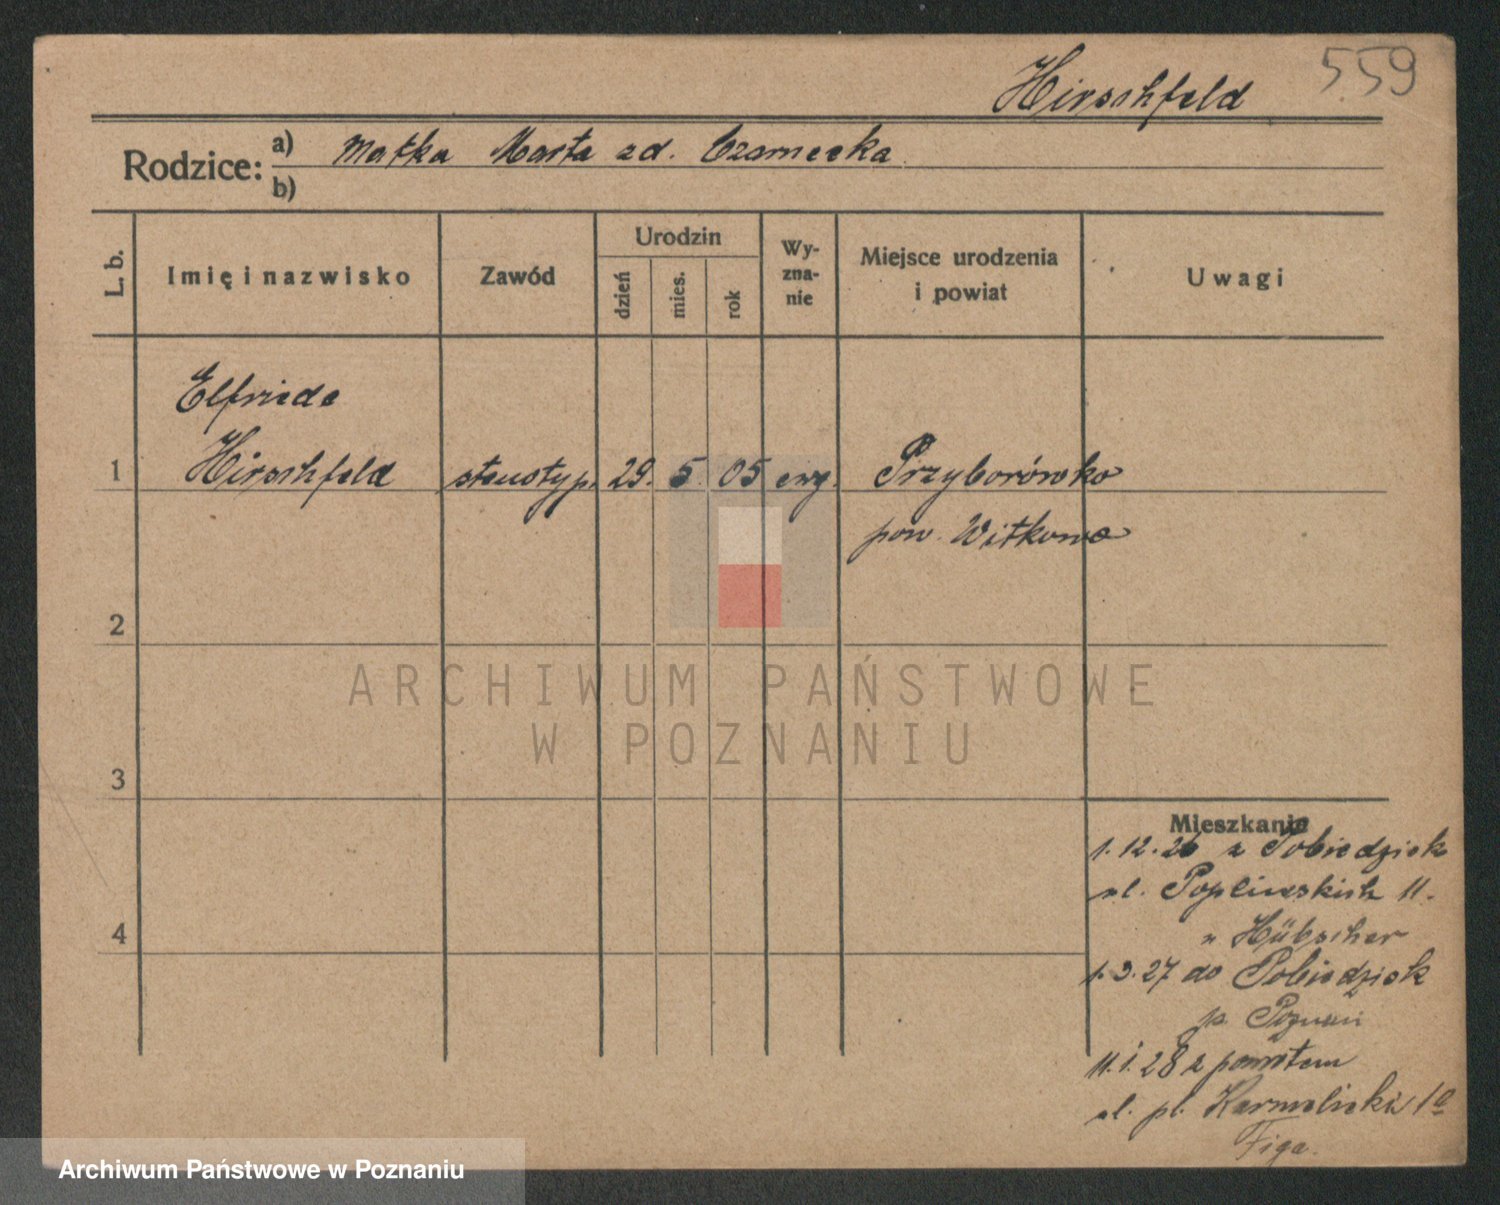 559
Hirschfeld
Rodzice: a) Matka Marta zd. Czarnecka
b)
L. b. Imię i nazwisko Zawód Urodzin dzień mies. rok Wyznanie Miejsce urodzenia i powiat Uwagi
Elfriede
1 Hirschfeld stenotyp. 29. 5. 05 ewg. Przyborówko
pow. Witkowo
2
3
4
Mieszkanie
1.12.26 z Pobiedzisk
ul. Poplińskich 11.
u Hübscher
1.3.27 do Pobiedzisk
p. Poznań
11.1.28 z powrotem
ul. pl. Karmelicki 1a
Figa.
ARCHIWUM PAŃSTWOWE
W POZNANIU
Archiwum Państwowe w Poznaniu